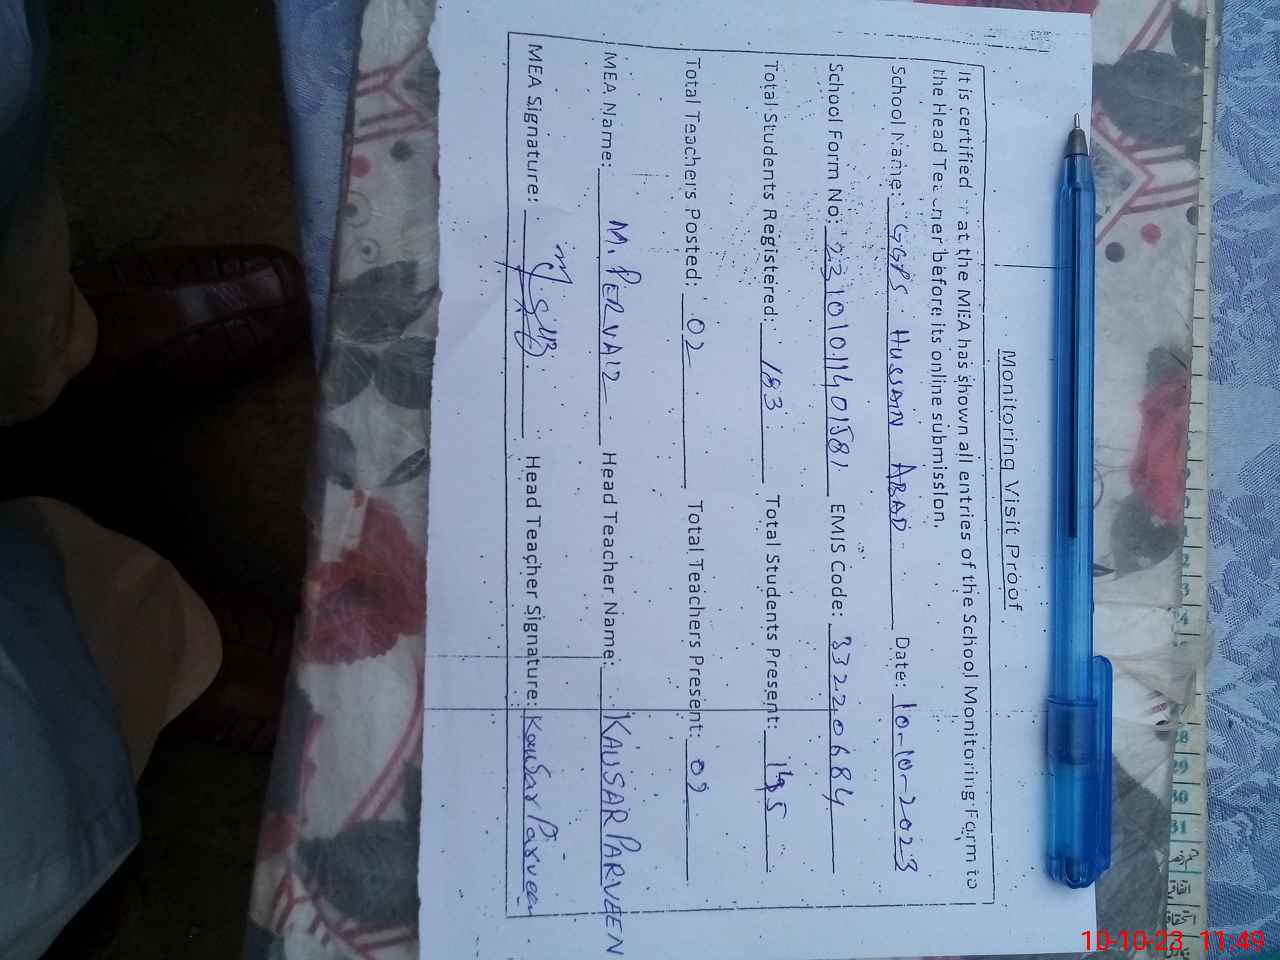 Monitoring Visit Proof
It is certified that the MEA has shown all entries of the School Monitoring Form to
the Head Teacher before its online submission.
School Name: GGPS HUSSAIN ABAD Date: 10-10-2023
School Form No: 23101011401581 EMIS Code: 33220684
Total Students Registered: 183 Total Students Present:
Total Teachers Posted: 02 Total Teachers Present: 02
MEA Name: M. PERVAIZ Head Teacher Name: KAUSAR PARVEEN
MEA Signature: Head Teacher Signature: Kausar Parveen
28
29
30
31
10-10-23 11:49